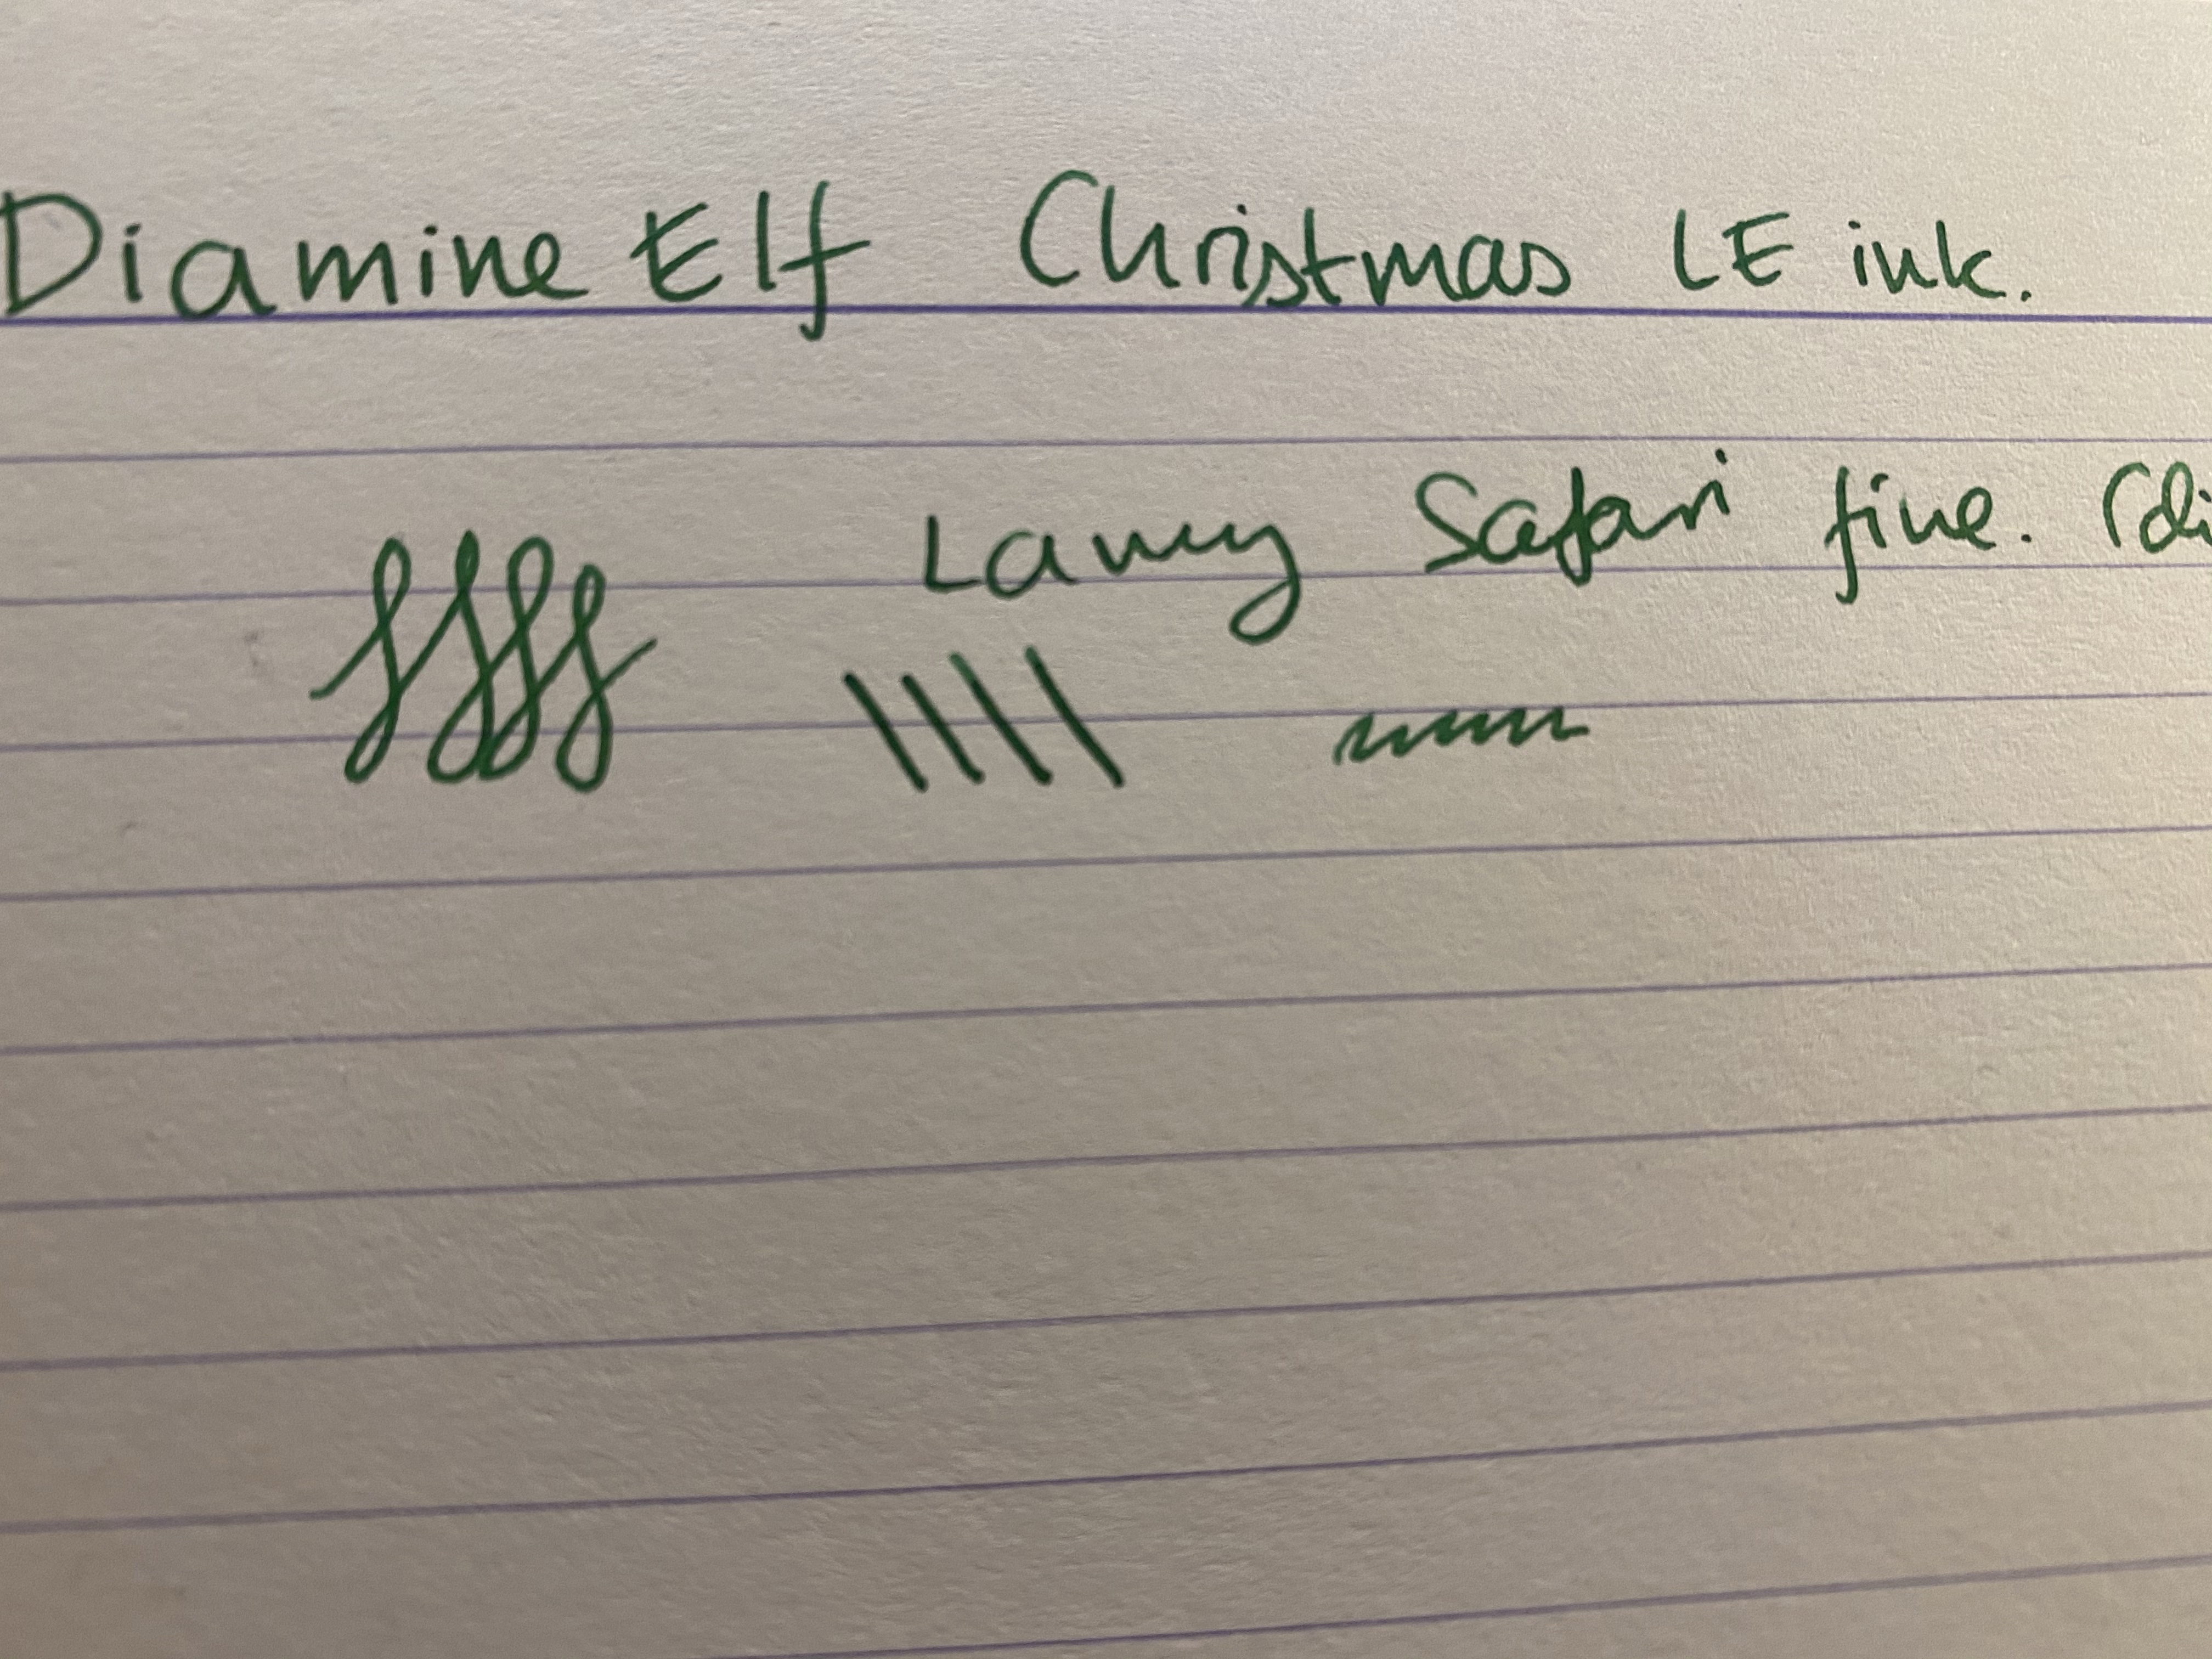 Diamine Elf Christmas LE ink.
Lamy Safari fine.